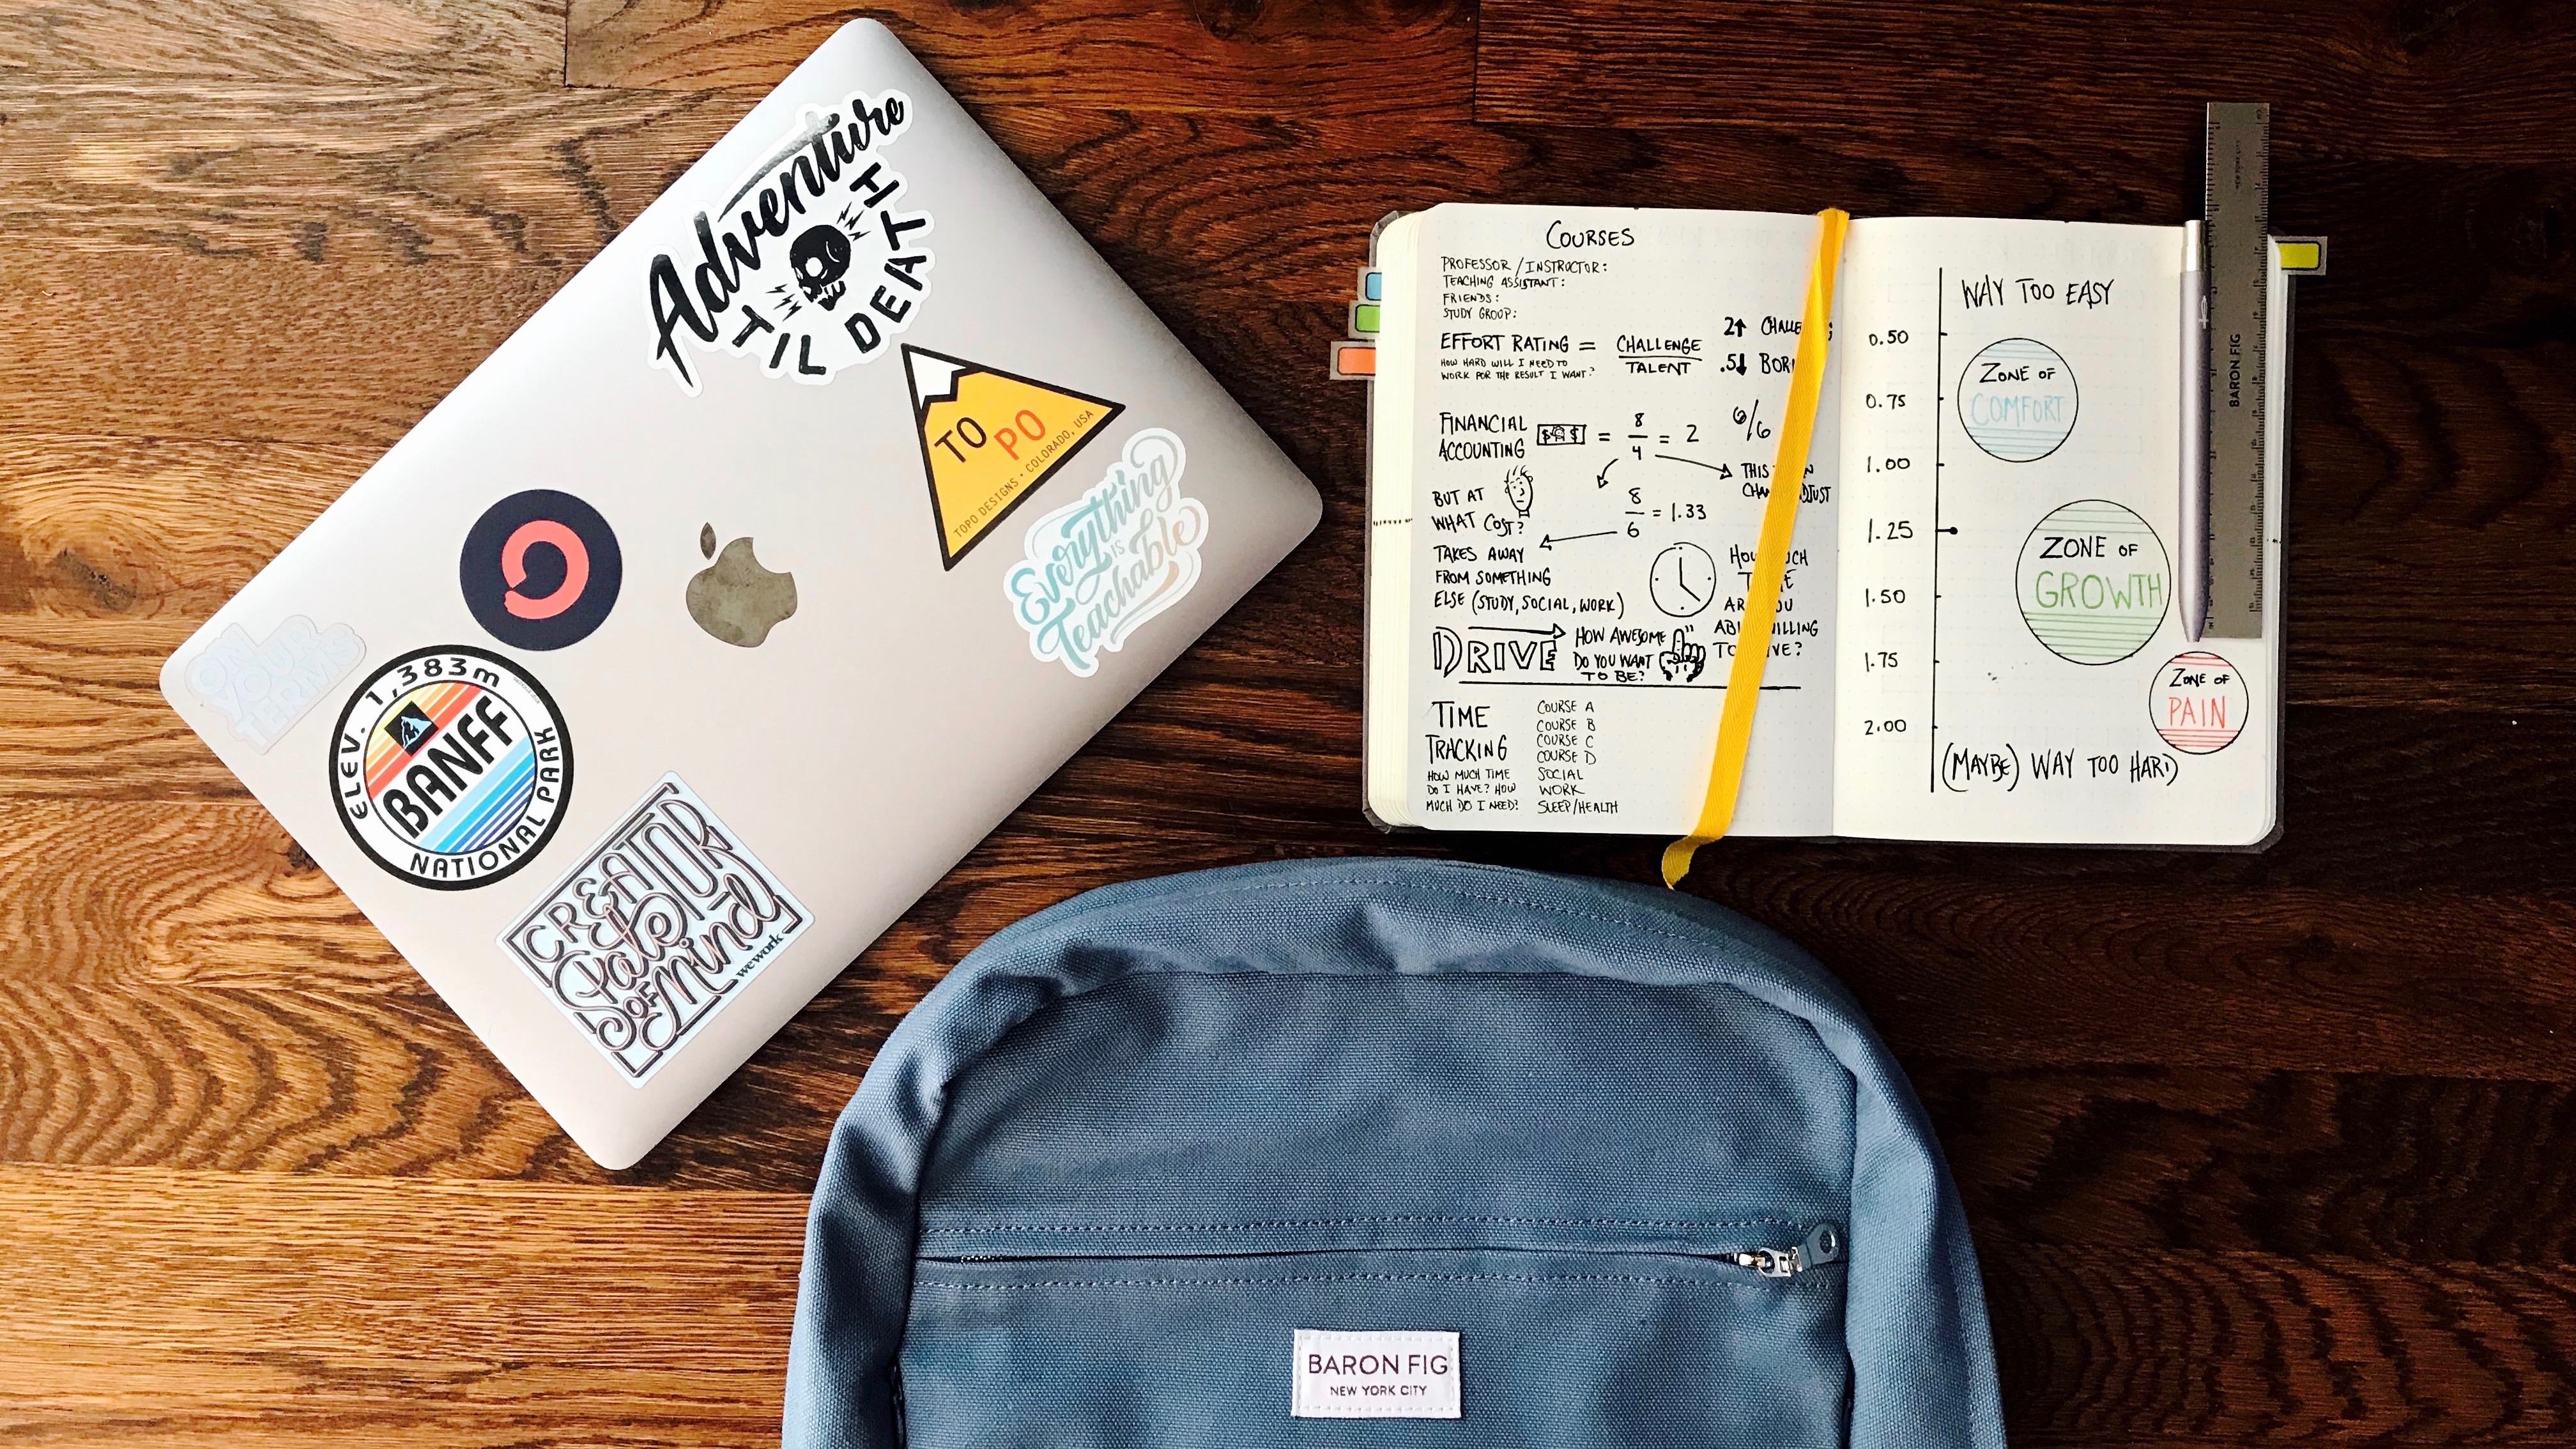 Adventure
TIL DEATH
TO
PO
TOPO DESIGNS • COLORADO, USA
Everything
IS
Teachable
ON
YOUR
TERMS
ELEV. 1,383m
BANFF
NATIONAL PARK
CREATOR
State
OF
Mind
wework
COURSES
PROFESSOR / INSTRUCTOR:
TEACHING ASSISTANT:
FRIENDS:
STUDY GROUP:
EFFORT RATING = CHALLENGE
TALENT
HOW HARD WILL I NEED TO
WORK FOR THE RESULT I WANT?
2↑
.5↓
FINANCIAL
ACCOUNTING
$ $ = 8/4 = 2
6/6
THIS
BUT AT
WHAT COST?
8/6 = 1.33
TAKES AWAY
FROM SOMETHING
ELSE (STUDY, SOCIAL, WORK)
DRIVE
HOW AWESOME
DO YOU WANT
TO BE?
TIME
TRACKING
HOW MUCH TIME
DO I HAVE? HOW
MUCH DO I NEED?
COURSE A
COURSE B
COURSE C
COURSE D
SOCIAL
WORK
SLEEP/HEALTH
WAY TOO EASY
0.50
ZONE OF
COMFORT
0.75
1.00
1.25
ZONE OF
GROWTH
1.50
1.75
ZONE OF
PAIN
2.00
(MAYBE) WAY TOO HARD
BARON FIG
BARON FIG
NEW YORK CITY